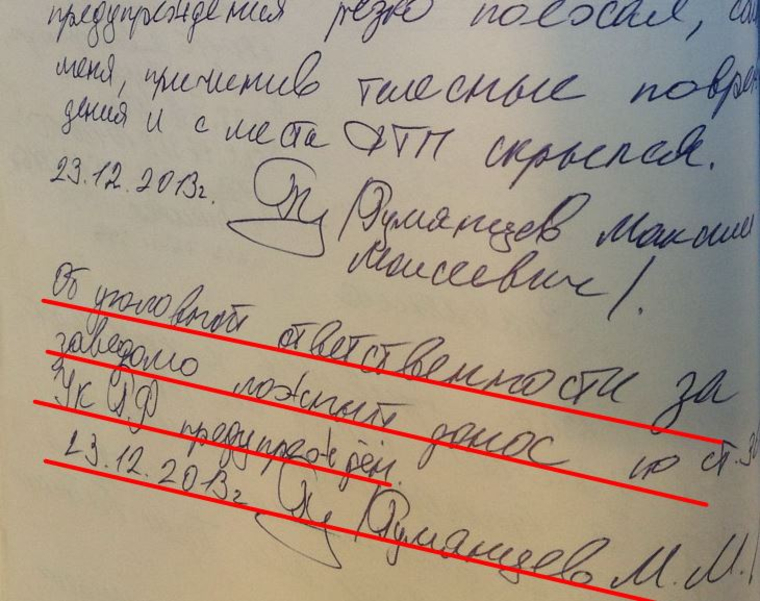 предупреждения резко поехал, сби
меня, причинив телесные повреж
дения и с места ДТП скрылся.
23.12.2013г. /Румянцев Максим
Моисеевич/.
Об уголовной ответственности за
заведомо ложный донос по ст.30
УК РФ предупреждён.
23.12.2013г. /Румянцев М.М./